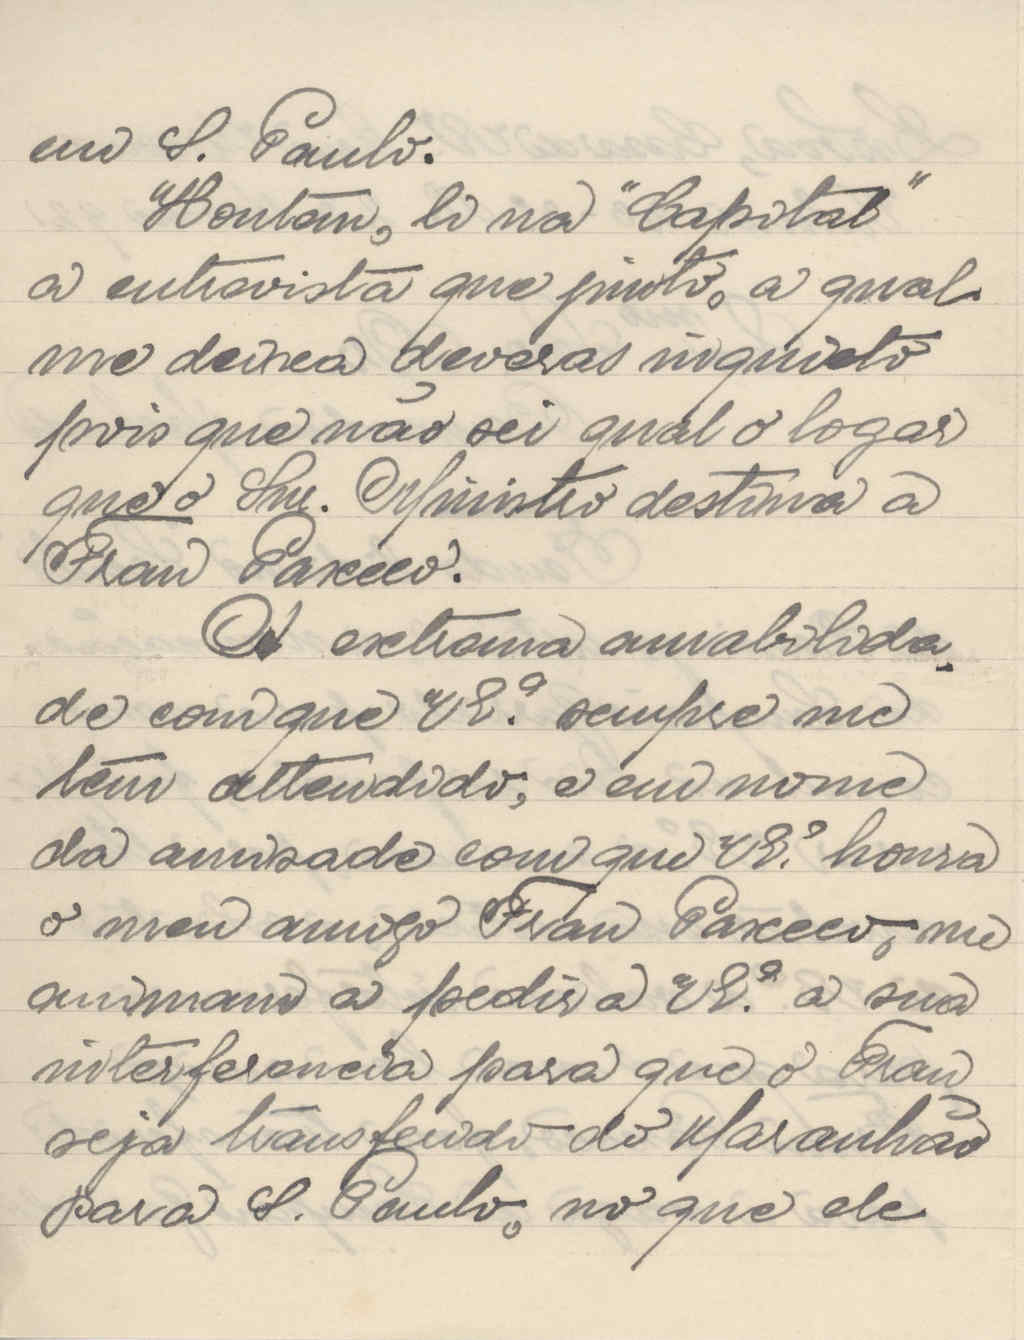 em S. Paulo.
Hontem, li na "Capital"
a entrevista que junto, a qual
me deixa deveras inquieto
pois que não sei qual o logar
que o Snr. Ministro destina a
Fran Paxeco.
A extrema amabilida-
de com que V E.ª sempre me
tem attendido, e em nome
da amisade com que V E.ª honra
o meu amigo Fran Paxeco, me
animam a pedir a V E.ª a sua
interferencia para que o Fran
seja transferido do Maranhão
para S. Paulo, no que ele